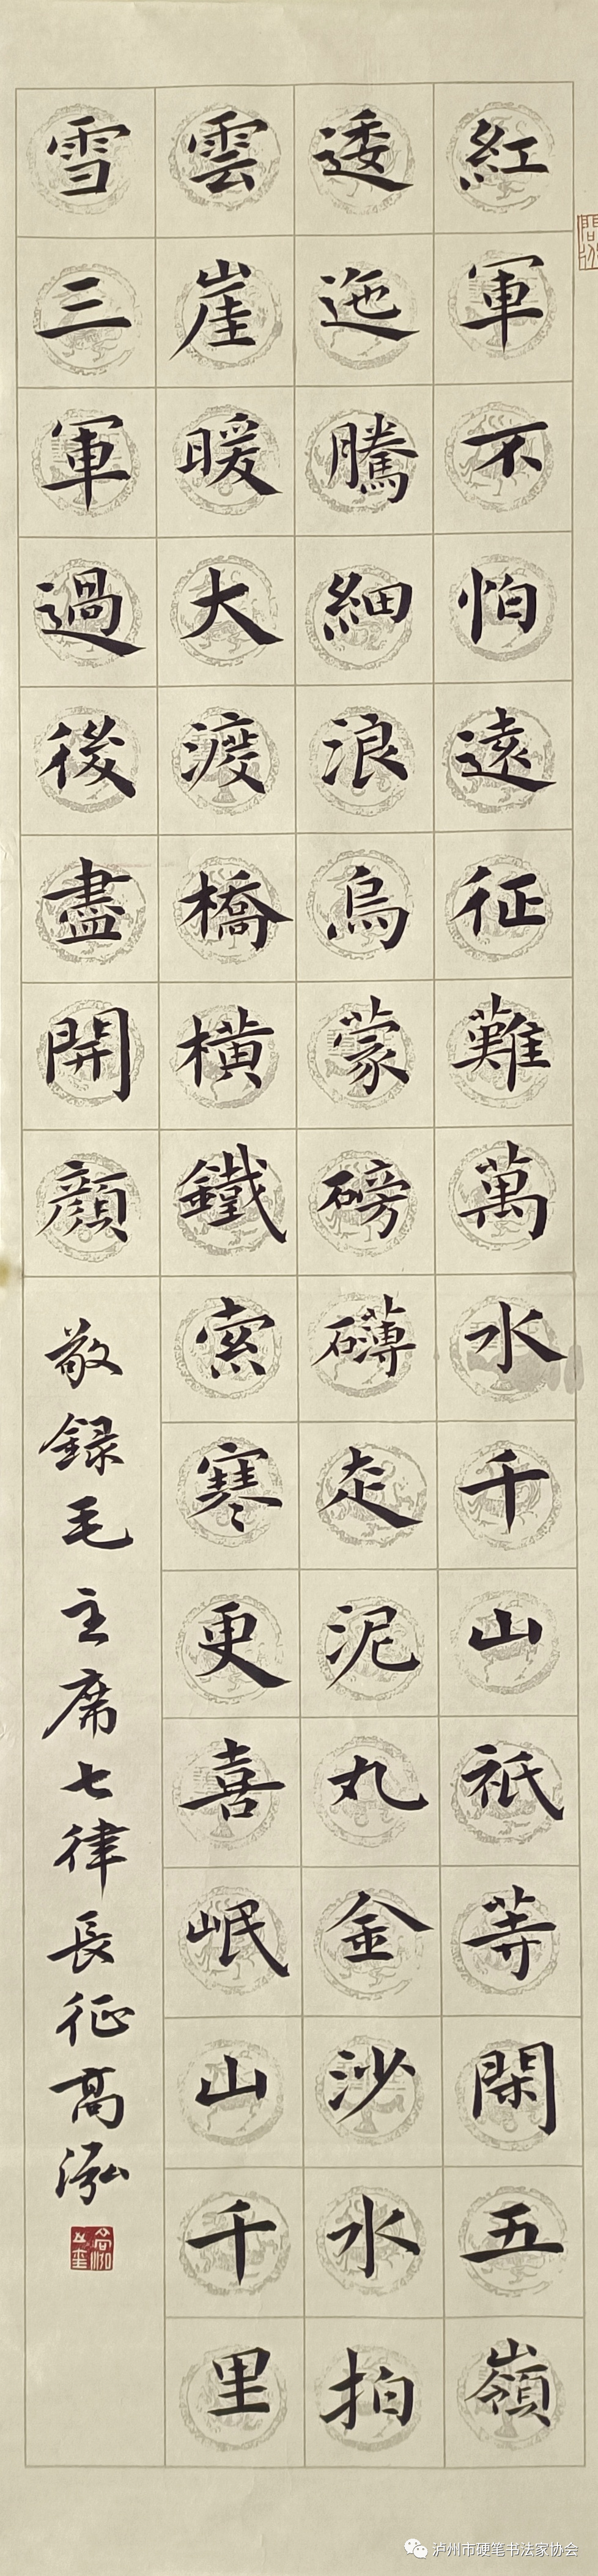 紅軍不怕遠征難萬水千山衹等閑五嶺
逶迤騰細浪烏蒙磅礴走泥丸金沙水拍
雲崖暖大渡橋橫鐵索寒更喜岷山千里
雪三軍過後盡開顏
敬録毛主席七律長征高泓
泸州市硬笔书法家协会